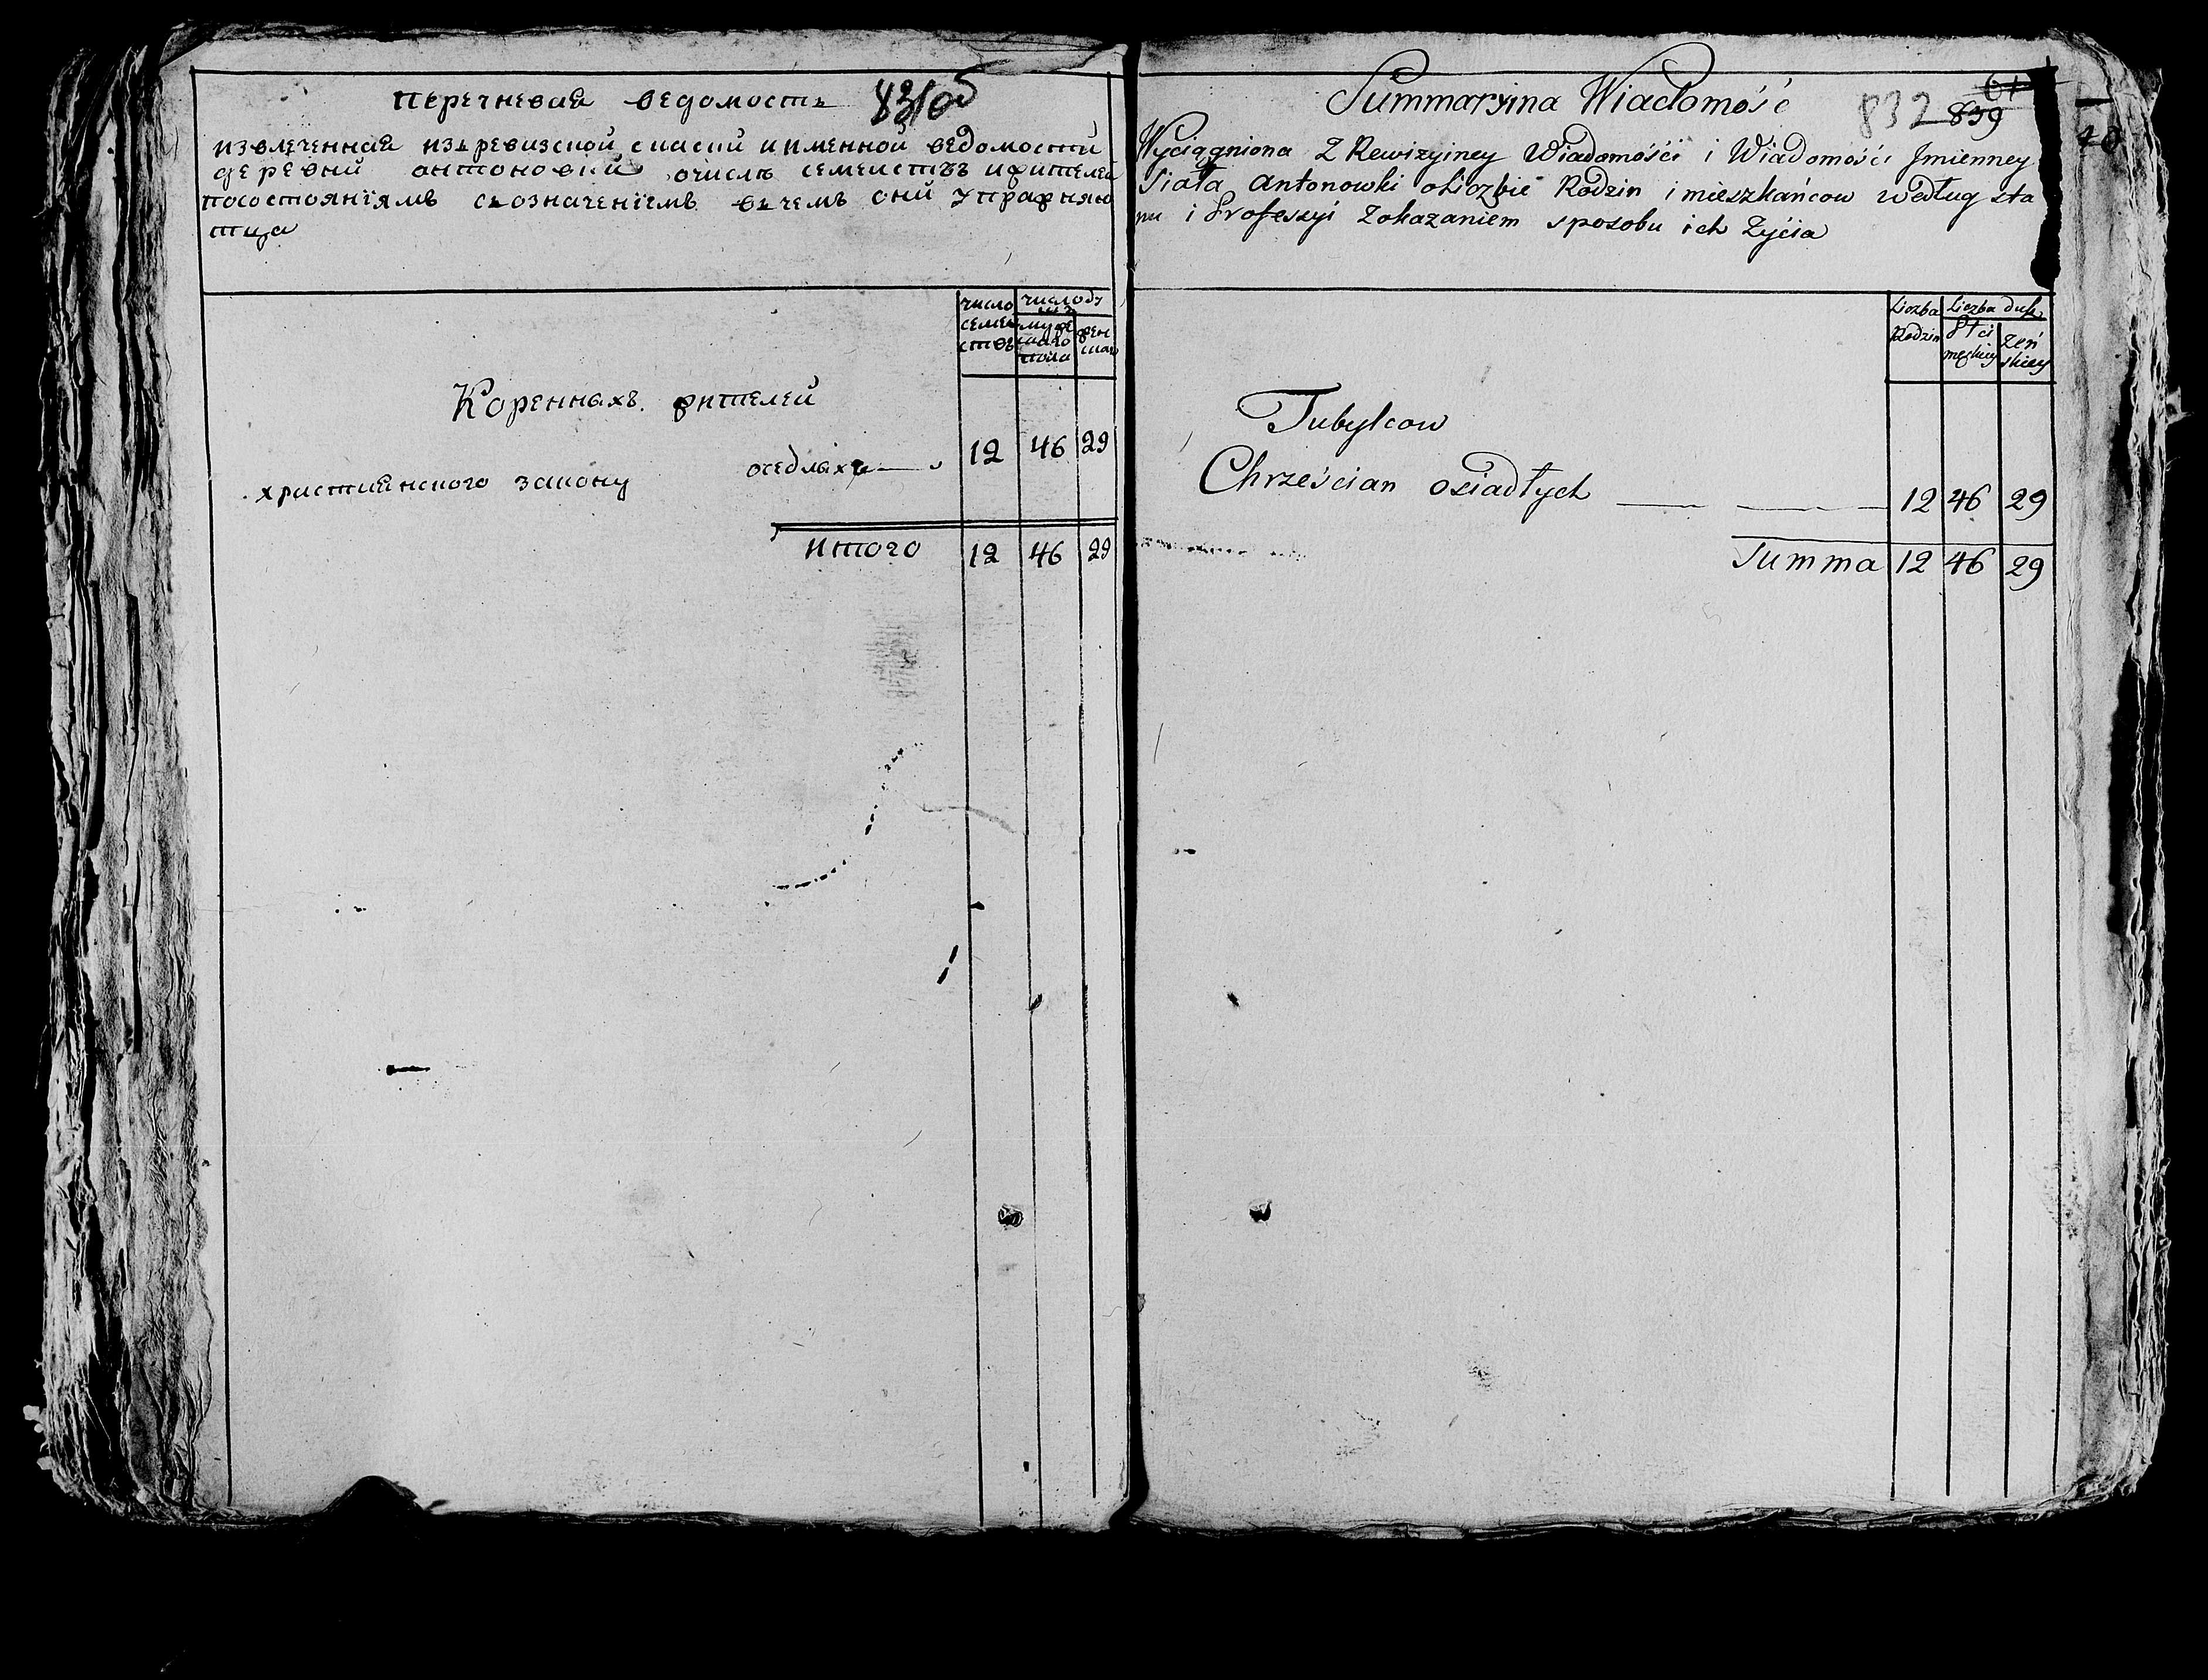 Перечневая ведомость 831об
извлеченная изъ ревизской скаски и именной ведомости
деревни антоновки очисле семействъ ижителей
посостояніямъ созначеніемъ вчемъ они упражняю
тца
число семействъ
число душъ
мужескаго пола
женскаго
Коренныхъ жителей
оседлыхъ 12 46 29
христианского закону
итого 12 46 29
Summaryina Wiadomość 832 839 61
Wyciągniona Z Rewizyiney Wiadomości i Wiadomości Jmienney
Siola Antonowki oLiczbie Rodzin i mieszkańcow według sta
nu i Professyi Zokazaniem sposobu ich Życia
Liczba Rodzin
Liczba dusz
Płci męskiey
Żeńskiey
Tubylcow
Chrześcian osiadłych 12 46 29
Summa 12 46 29